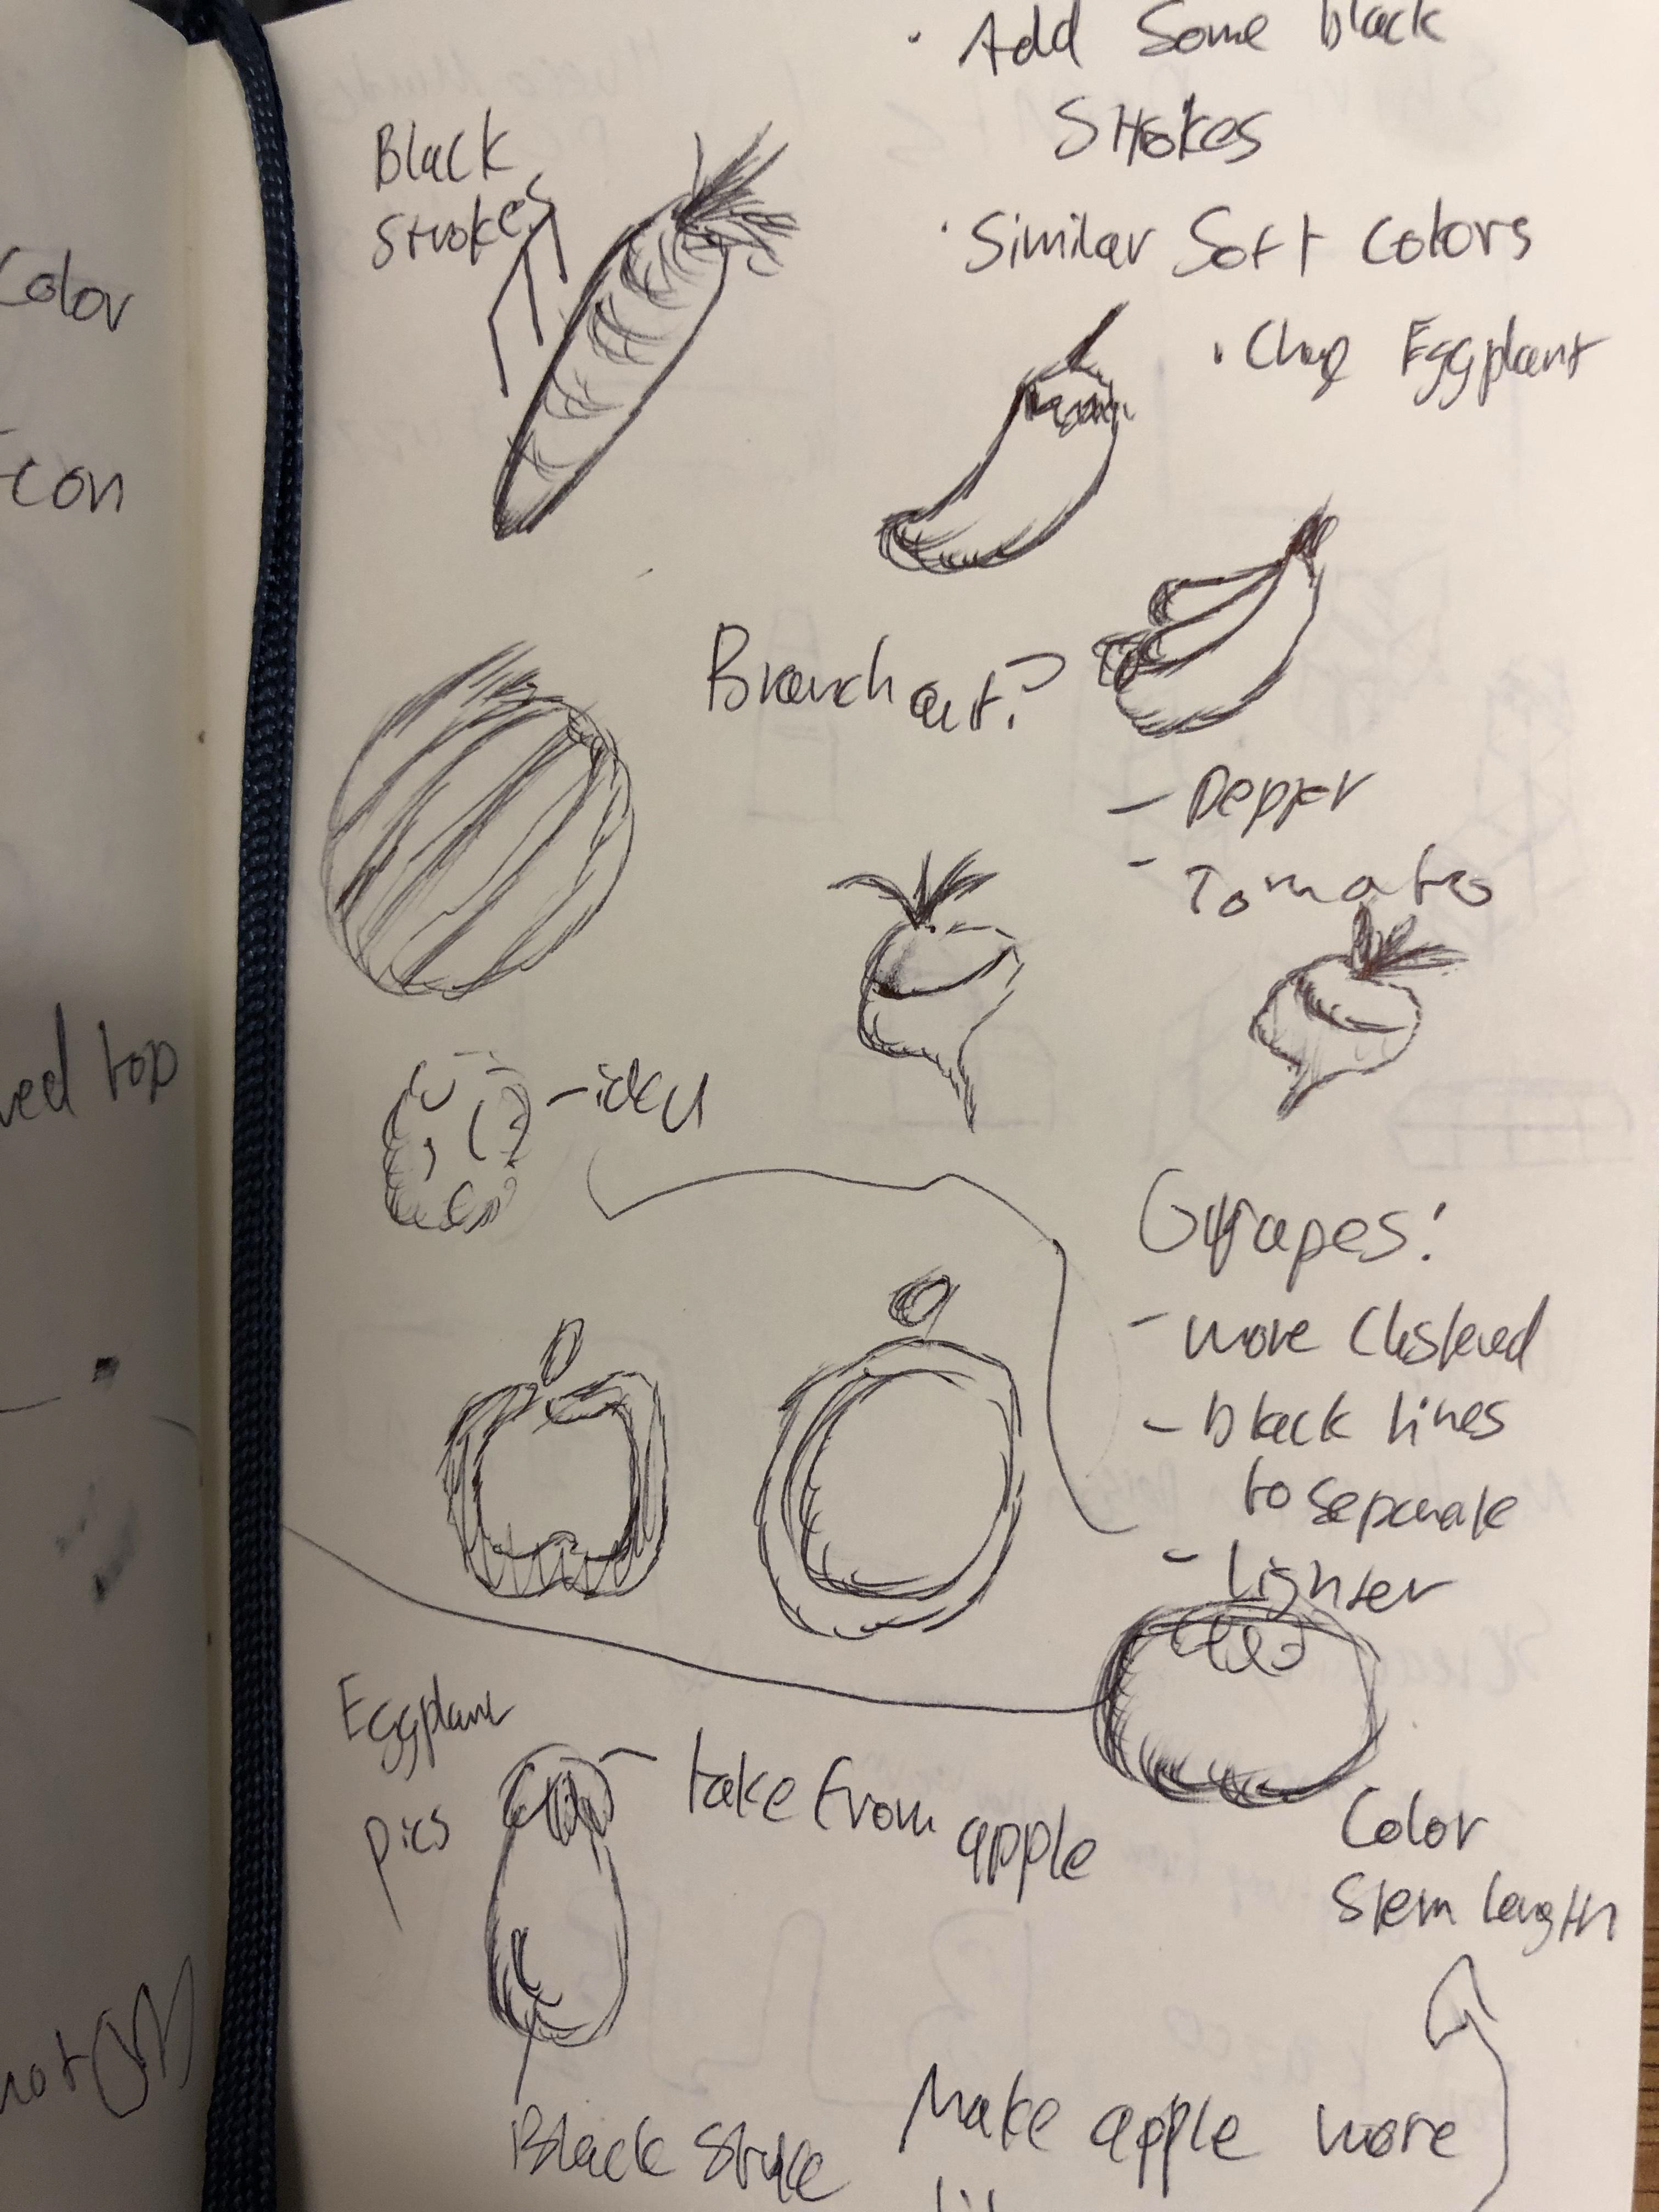 Color
con
ved top
not
• Add Some black
Strokes
Black
Strokes
• Similar Soft Colors
• Eggplant
Branch out?
- Pepper
- Tomato
Grapes:
- more Clustered
- black lines
to separate
- Lighter
Eggplant
pics
take from
apple
Color
Stem length
Black Stroke
Make apple more